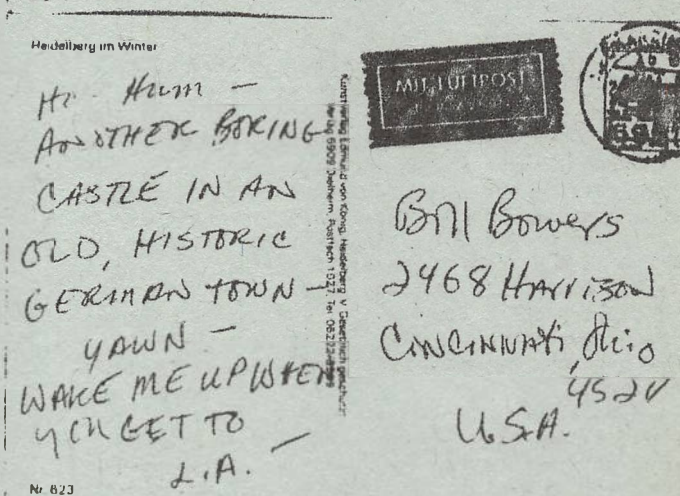 Heidelberg im Winter
HI HUM —
ANOTHER BORING
CASTLE IN AN
OLD, HISTORIC
GERMAN TOWN —
YAWN —
WAKE ME UP WHEN
YOU GET TO
L.A. —
Nr. 823
Kunstverlag Edmund von König, Heidelberg Gesetzlich geschützt
Verlag 6909 Dielheim, Postfach 1027, Tel
MIT LUFTPOST
Bill Bowers
2468 HARRISON
CINCINNATI, Ohio
U.S.A.